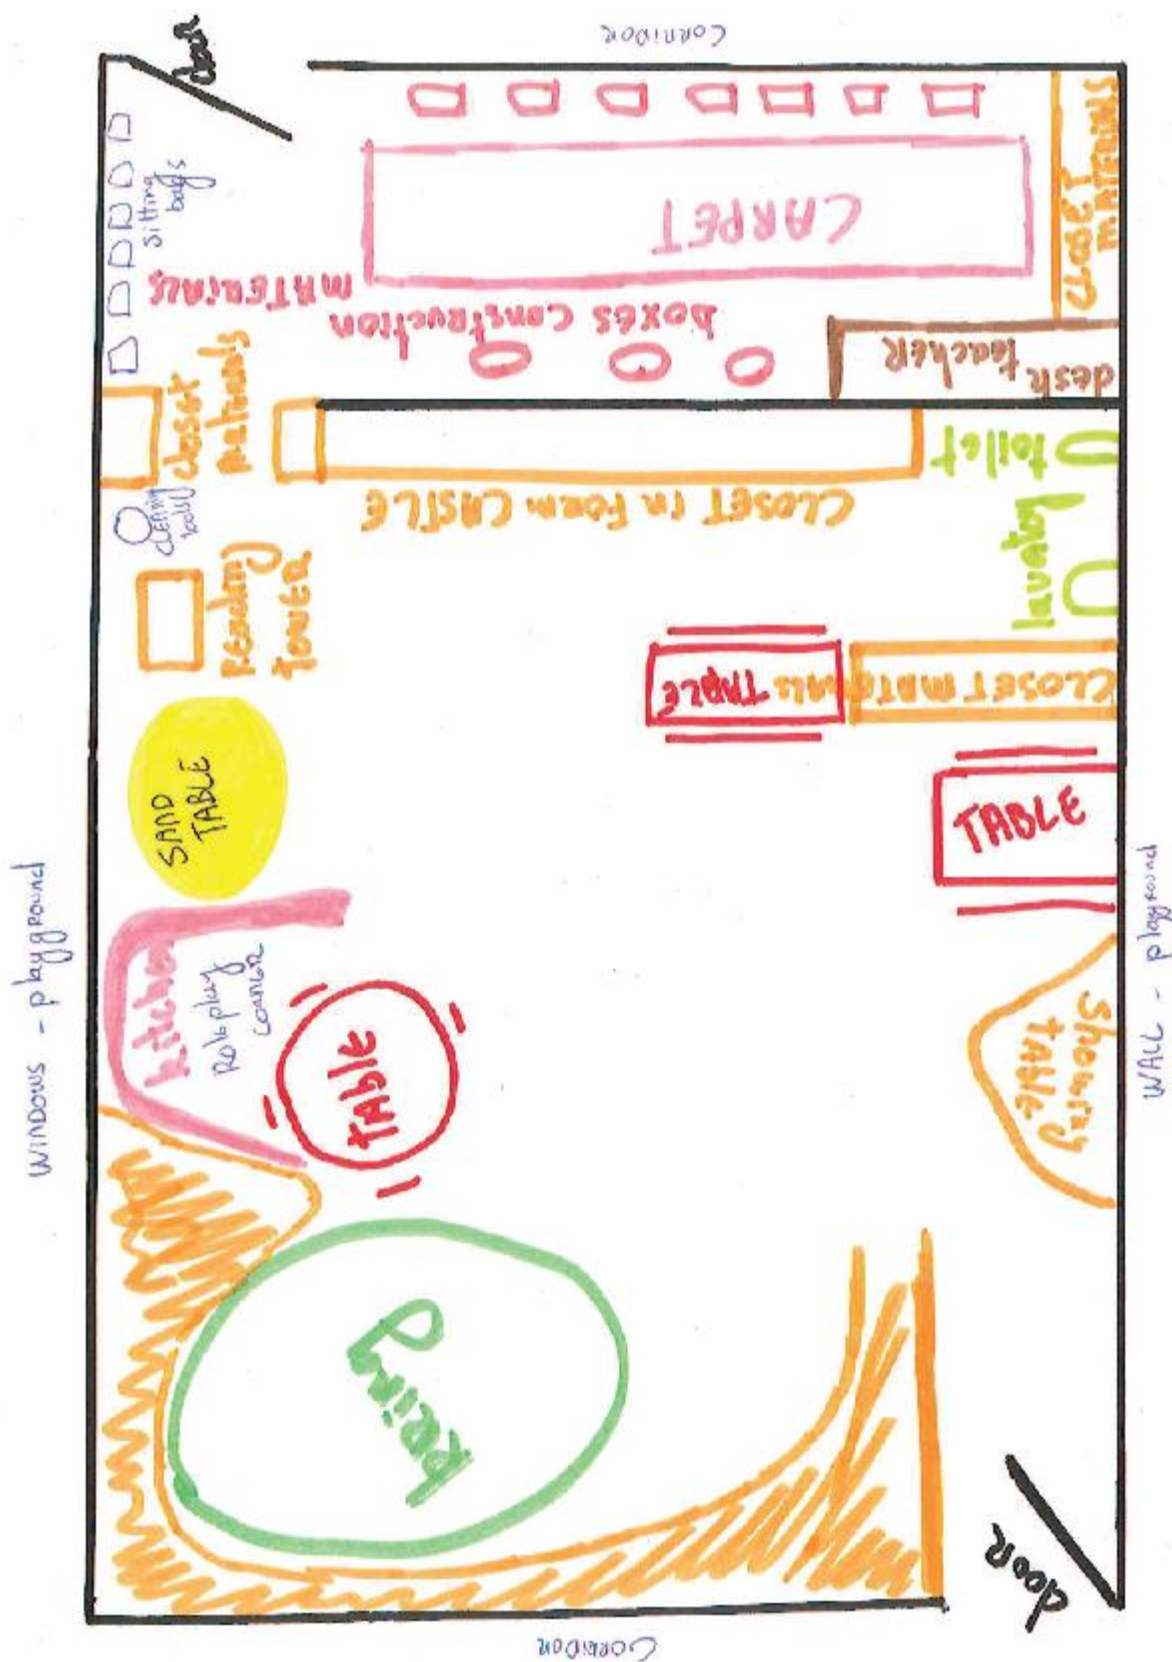 CORRIDOR
door
sitting
bags
CARPET
CLOSET
MATERIALS
boxes construction
MATERIALS
desk
teacher
closet
materials
CLOSET IN FORM CASTLE
toilet
lavatory
CLEANING
tools
Reading
TOWER
CLOSET MATERIALS
TABLE
SAND
TABLE
TABLE
WINDOWS - playground
WALL - playground
kitchen
Roleplay
CORNER
TABLE
Showing
TABLE
kRing
door
CORRIDOR